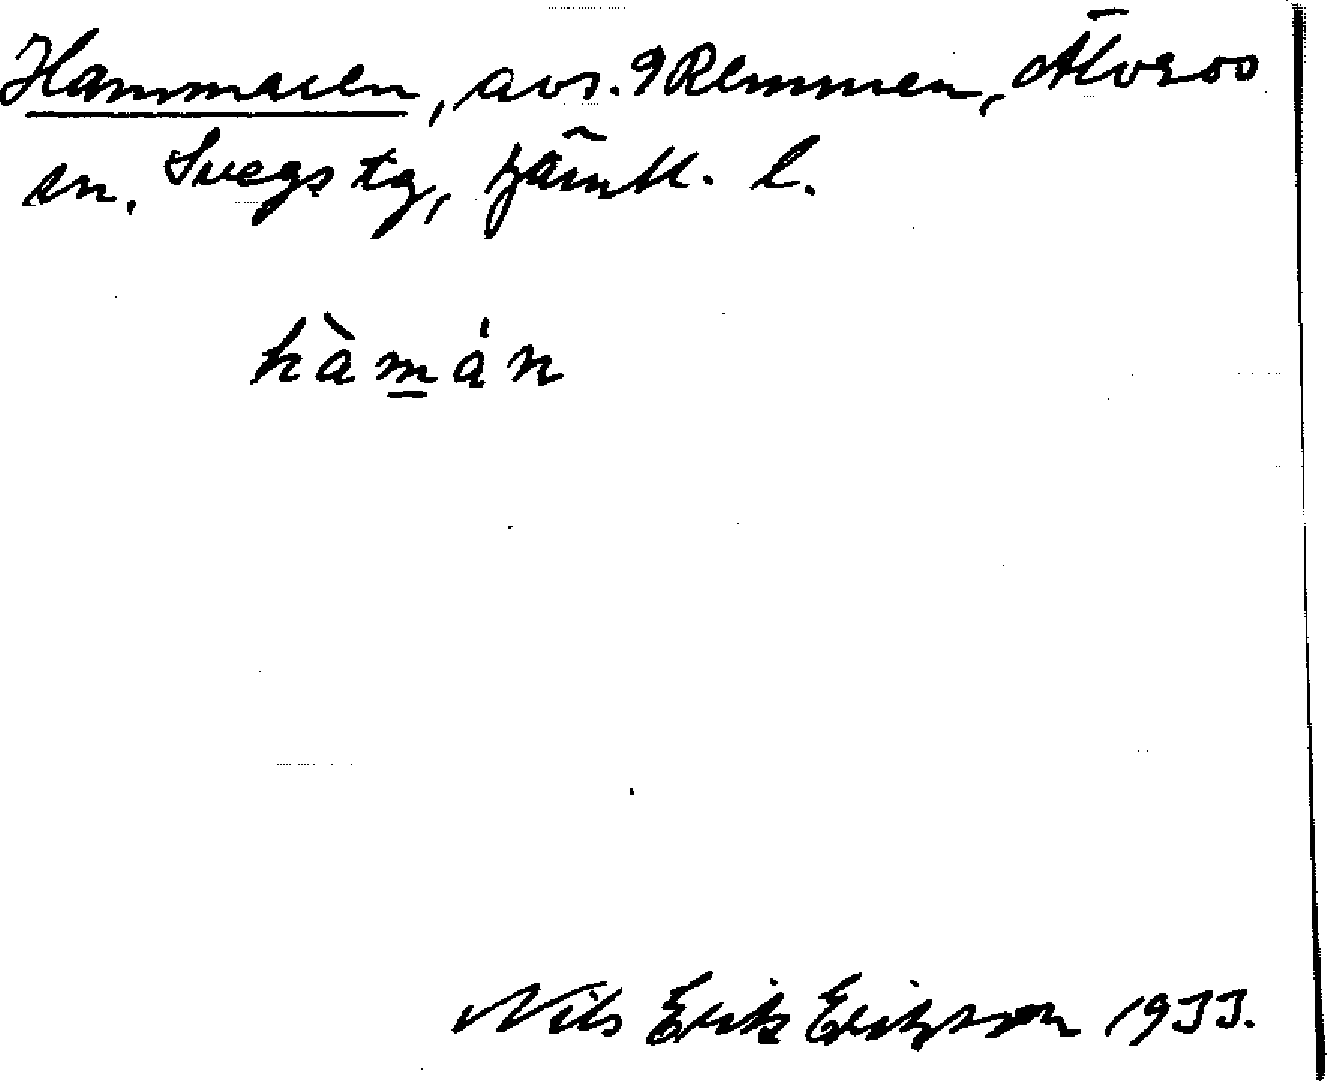 Hammaren, avs. 9 Remmen, Älvros
sn. Svegs tg, Jämtl. l.
hàmán
Nils Erik Ericsson 1933.